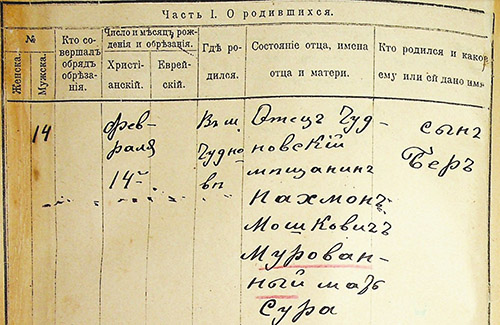 Часть I. О родившихся.
№
Женска.
Мужска.
Кто со-
вершалъ
обрядъ
обрѣза-
нія.
Число и мѣсяцъ рож-
денія и обрѣзанія.
Христі-
анскій.
Еврей-
скій.
Гдѣ ро-
дился.
Состояніе отца, имена
отца и матери.
Кто родился и какое
ему или ей дано имя
14
Фев-
раля
14
Въ м.
Чудно
вѣ
Отецъ Чуд-
новскій
мѣщанинъ
Нахмонъ
Мошковичъ
Мурован-
ный мать
Сура
сынъ
Беръ